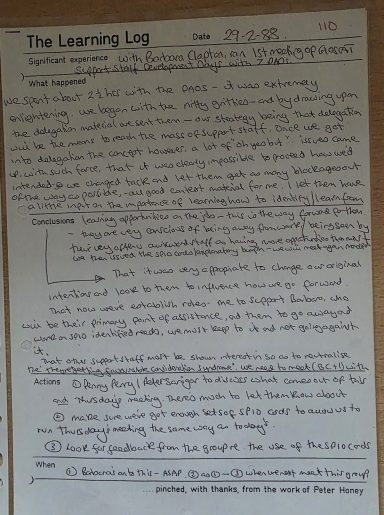 110
The Learning Log Date 29-2-88
Significant experience with Barbara Clapton, ran 1st meeting of
Support Staff Development Days with 7 DAOs.
What happened
We spent about 2½ hrs with the DAOs - it was extremely
enlightening. We began with the nitty gritties - and by drawing upon
the delegation material we sent them - our strategy being that delegation
will be the means to reach the mass of support staff. Once we got
into delegation the concept however, a lot of "oh yes but".. issues came
up, with such force, that it was clearly impossible to proceed how we'd
intended - so we changed tack and let them get as many blockages out
of the way as possible, - all good content material for me. I let them have
a little input on the importance of learning how to identify / learn from
Conclusions learning opportunities on the job - this is the way forward for them
- they are very conscious of being away from work / being seen by
their very often awkward staff as having more opportunities than
we then issued the SPIO cards explanatory bumph - we will meet again
That it was very appropriate to change our original
intentions and look to them to influence how we go forward.
That now we've establish roles - me to support Barbara, who
will be their primary point of assistance, and them to go away and
work on SPIO identified needs, we must keep to it and not go
it.
That other support staff must be shown interest in so as to neutralise
the 'they're getting favourable consideration syndrome'. We need to meet (BC + I) with
Actions ① Penny Perry / Peter to discuss what comes out of this
and Thursdays meeting. There's much to let them know about
② make sure we've got enough sets of SPIO cards to allow us to
run Thursday's meeting the same way as today's.
③ Look for feedback from the group re. the use of the SPIO cards
When ① Barbara's onto this - ASAP ② as ① - ③ when we next meet this group
.... pinched, with thanks, from the work of Peter Honey